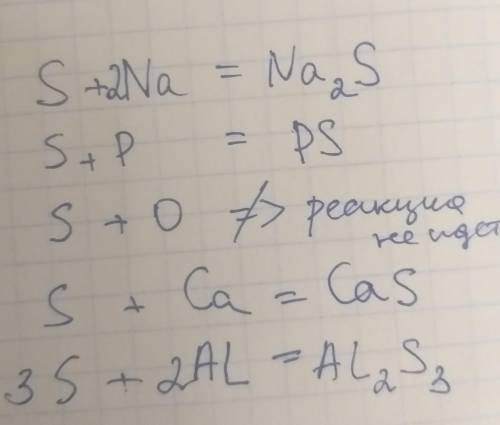 S + 2Na = Na₂S
S + P = PS
S + O ≠> реакция
не идет
S + Ca = CaS
3S + 2AL = AL₂S₃